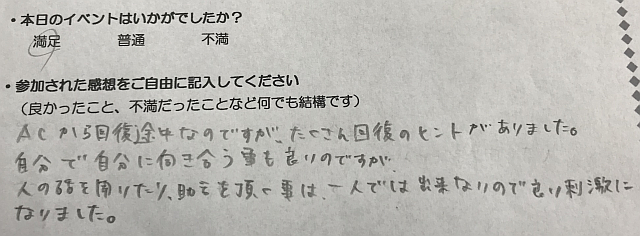 ・本日のイベントはいかがでしたか？
満足 普通 不満
・参加された感想をご自由に記入してください
（良かったこと、不満だったことなど何でも結構です）
ACから回復途中なのですが、たくさん回復のヒントがありました。
自分で自分に向き合う事も良いのですが
人の話を聞いたり、助言を頂く事は、一人では出来ないので良い刺激に
なりました。